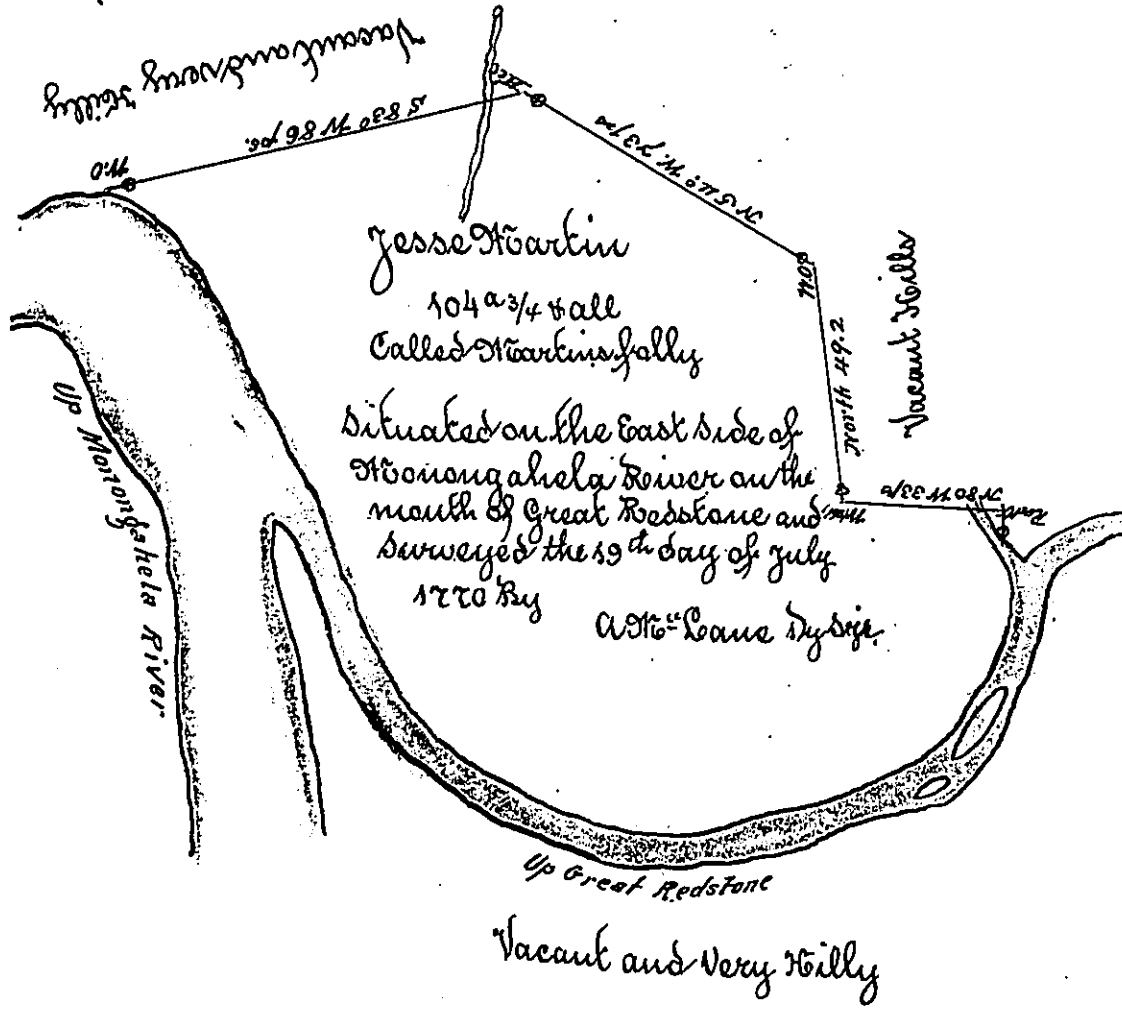 Vacant and very Hilly
S 83° W 86 ps.
W.O
N 54° W. 73 ps
W.O
North 49.2
Vacant Hills
N 80 W 33
Jesse Martin
104 a 3/4 & all
Called Martins folly
Situated on the East Side of
Monongahela River on the
mouth of Great Redstone and
Surveyed the 19th day of July
1770 By
A McLane Dy Syr.
Up Monongahela River
Up Great Redstone
Vacant and Very Hilly